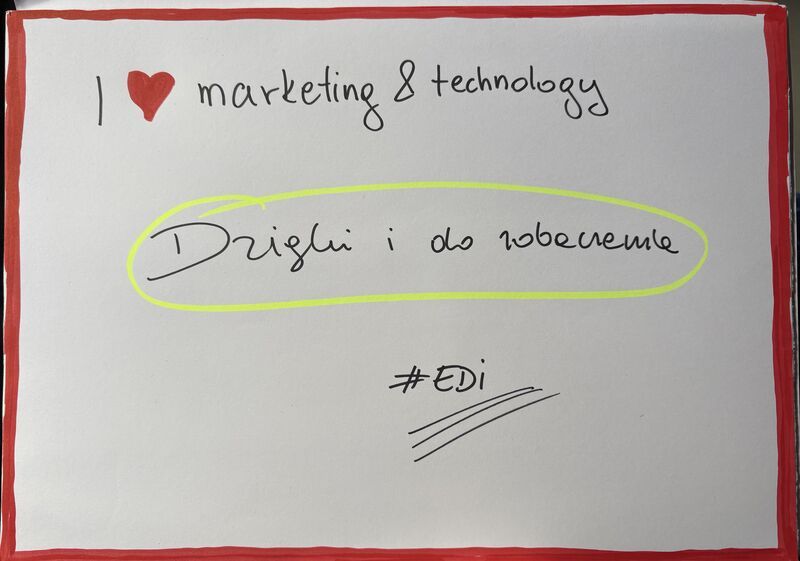 I ❤ marketing & technology
Dzięki i do zobaczenia
#EDi